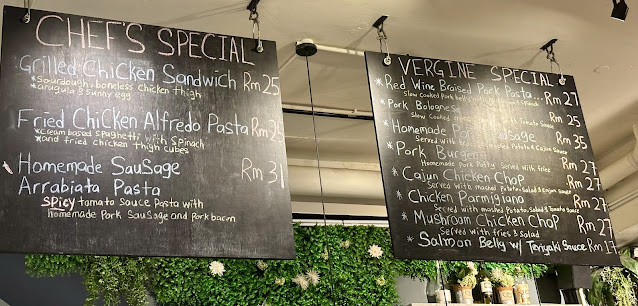 CHEF'S SPECIAL
Grilled Chicken Sandwich Rm 25
*sourdough, boneless chicken thigh
*arugula & sunny egg
Fried Chicken Alfredo Pasta Rm 25
*cream based spaghetti with spinach
*and fried chicken thigh cubes
Homemade Sausage Rm 31
Arrabiata Pasta
spicy tomato sauce Pasta with
homemade Pork Sausage and Pork bacon
VERGINE SPECIAL
*Red Wine Braised Pork Pasta Rm 27
Slow cooked Pork
*Pork Bolognese Rm 25
Slow cooked Tomato Sauce
*Homemade Pork Sausage Rm 35
Served with mashed Potato & Cajun Sauce
*Pork Burger Rm 27
Homemade Pork Patty Served with fries
*Cajun Chicken Chop Rm 27
Served with mashed Potato, Salad & Cajun Sauce
*Chicken Parmigiana Rm 27
Served with mashed Potato, Salad & Tomato Sauce
*Mushroom Chicken Chop Rm 27
Served with fries & Salad
*Salmon Belly w/ Teriyaki Sauce Rm 17